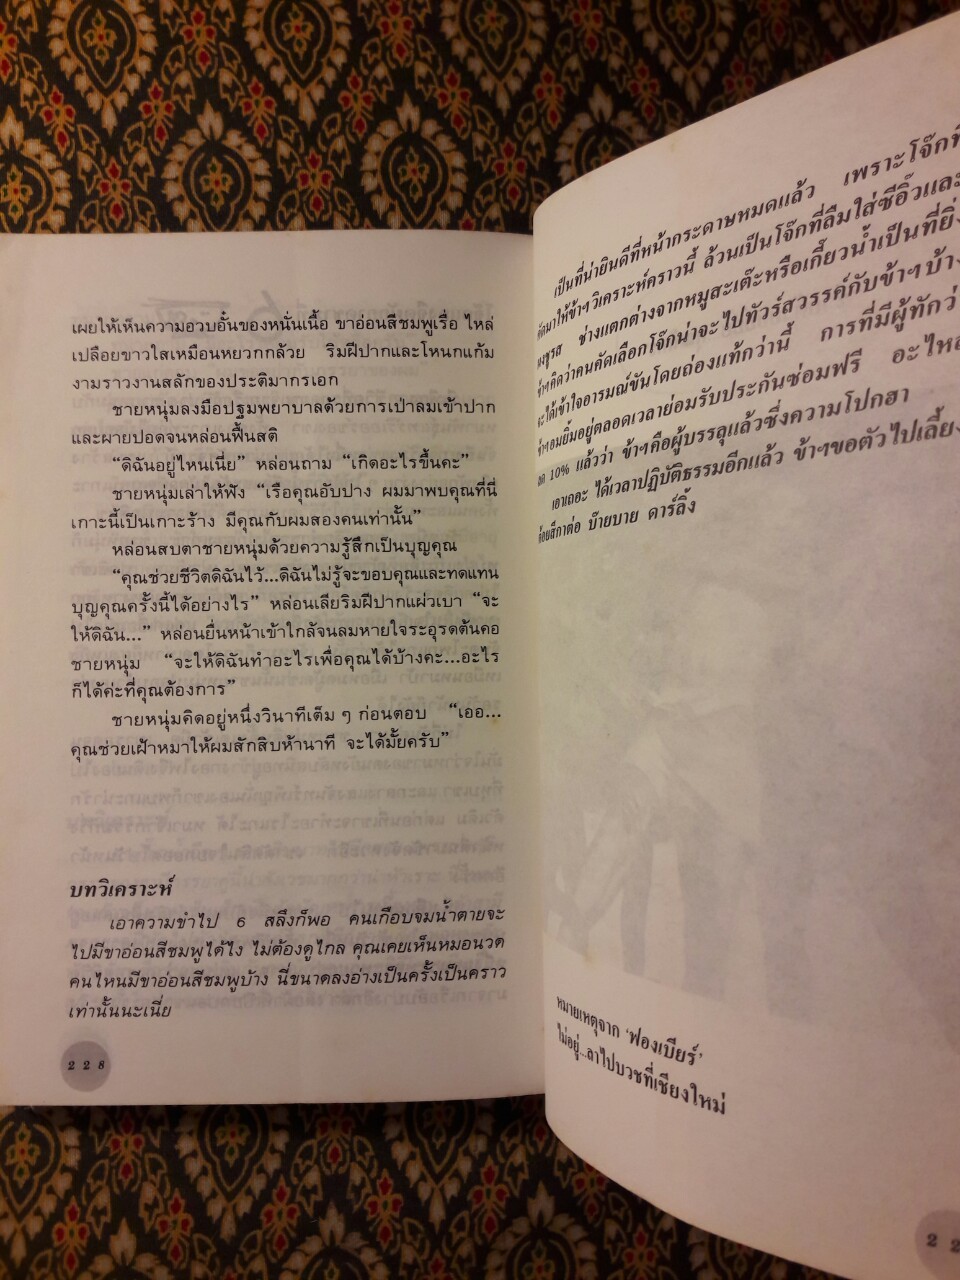 เผยให้เห็นความอวบอั๋นของหนั่นเนื้อ ขาอ่อนสีชมพูเรื่อ ไหล่
เปลือยขาวใสเหมือนหยวกกล้วย ริมฝีปากและโหนกแก้ม
งามราวงานสลักของประติมากรเอก
ชายหนุ่มลงมือปฐมพยาบาลด้วยการเป่าลมเข้าปาก
และผายปอดจนหล่อนฟื้นสติ
“ดิฉันอยู่ไหนเนี่ย” หล่อนถาม “เกิดอะไรขึ้นคะ”
ชายหนุ่มเล่าให้ฟัง “เรือคุณอับปาง ผมมาพบคุณที่นี่
เกาะนี้เป็นเกาะร้าง มีคุณกับผมสองคนเท่านั้น”
หล่อนสบตาชายหนุ่มด้วยความรู้สึกเป็นบุญคุณ
“คุณช่วยชีวิตดิฉันไว้...ดิฉันไม่รู้จะขอบคุณและทดแทน
บุญคุณครั้งนี้ได้อย่างไร” หล่อนเลียริมฝีปากแผ่วเบา “จะ
ให้ดิฉัน...” หล่อนยื่นหน้าเข้าใกล้จนลมหายใจระอุรดต้นคอ
ชายหนุ่ม “จะให้ดิฉันทำอะไรเพื่อคุณได้บ้างคะ...อะไร
ก็ได้ค่ะที่คุณต้องการ”
ชายหนุ่มคิดอยู่หนึ่งวินาทีเต็ม ๆ ก่อนตอบ “เออ...
คุณช่วยเฝ้าหมาให้ผมสักสิบห้านาที จะได้มั้ยครับ”
บทวิเคราะห์
เอาความขำไป 6 สลึงก็พอ คนเกือบจมน้ำตายจะ
ไปมีขาอ่อนสีชมพูได้ไง ไม่ต้องดูไกล คุณเคยเห็นหมอนวด
คนไหนมีขาอ่อนสีชมพูบ้าง นี่ขนาดลงอ่างเป็นครั้งเป็นคราว
เท่านั้นนะเนี่ย
228
เป็นที่น่ายินดีที่หน้ากระดาษหมดแล้ว เพราะโจ๊กที่
คัดมาให้ข้าฯวิเคราะห์คราวนี้ ล้วนเป็นโจ๊กที่ลืมใส่ซีอิ๊วและ
ผงชูรส ช่างแตกต่างจากหมูสะเต๊ะหรือเกี๊ยวน้ำเป็นที่ยิ่ง
ข้าฯคิดว่าคนคัดเลือกโจ๊กน่าจะไปทัวร์สวรรค์กับข้าฯบ้าง
จะได้เข้าใจอารมณ์ขันโดยถ่องแท้กว่านี้ การที่มีผู้ทักว่า
ข้าฯอมยิ้มอยู่ตลอดเวลาย่อมรับประกันซ่อมฟรี อะไหล่
ลด 10% แล้วว่า ข้าฯคือผู้บรรลุแล้วซึ่งความโปกฮา
เอาเถอะ ได้เวลาปฏิบัติธรรมอีกแล้ว ข้าฯขอตัวไปเลี้ยง
ต้อยสีกาต่อ บ๊ายบาย ดาร์ลิ้ง
หมายเหตุจาก ‘ฟองเบียร์’
ไม่อยู่...ลาไปบวชที่เชียงใหม่